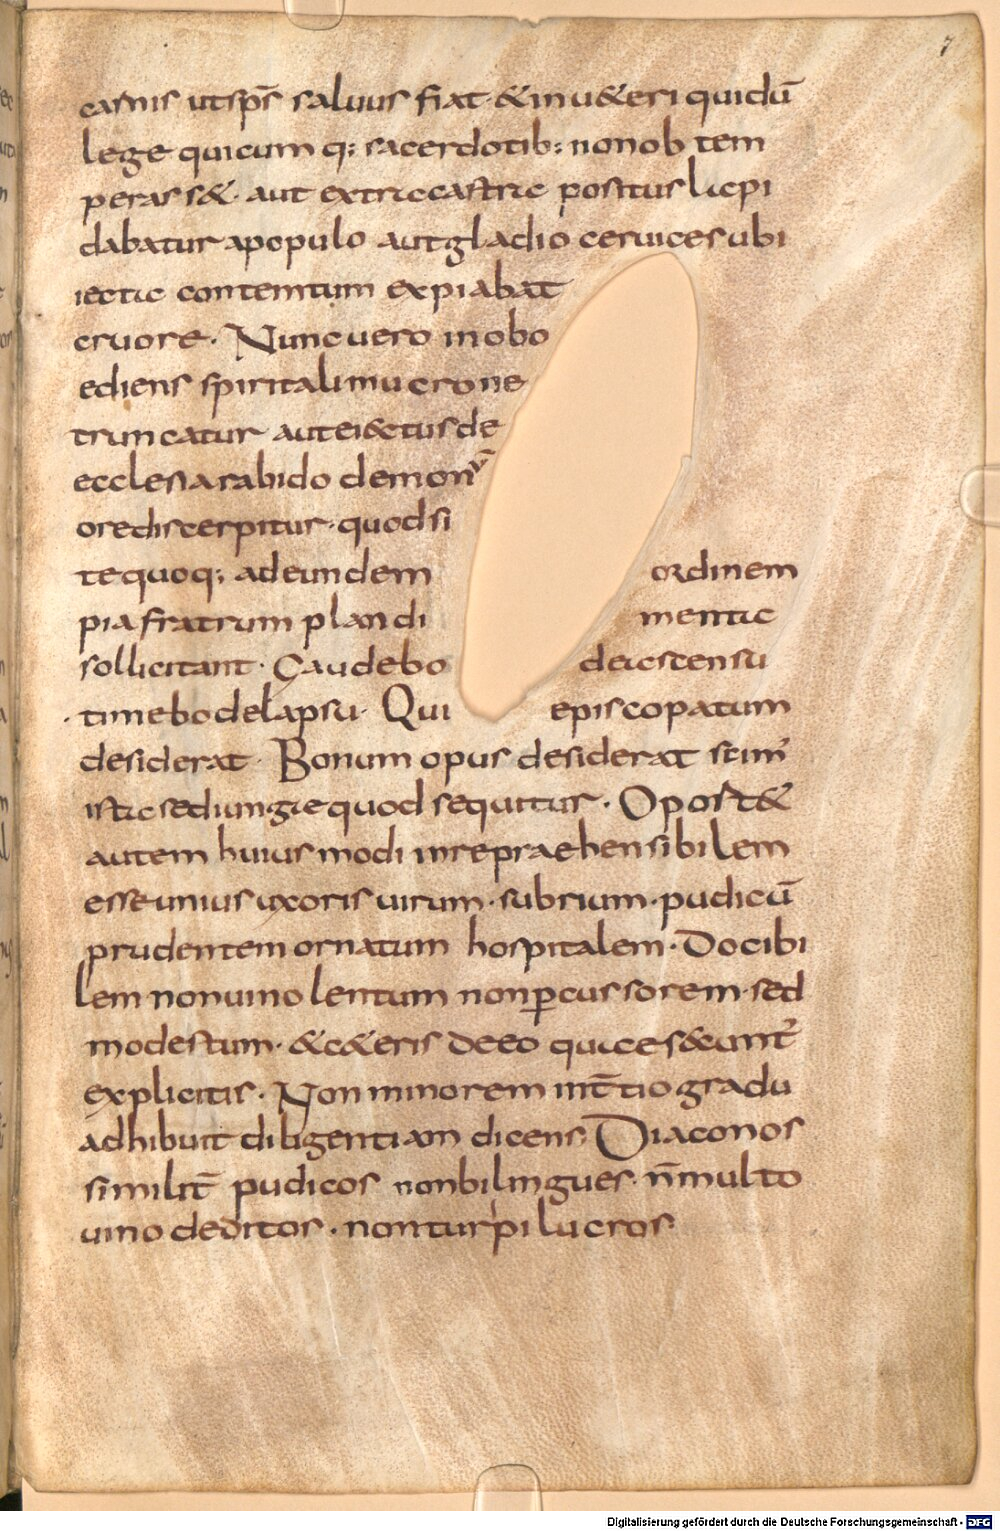 7
carnis ut sp̄s saluus fiat · & in u&eri quidū
lege quicumq; sacerdotib; non ob tem
perass& · aut extra castra positus lapi
dabatur a populo aut gladio ceruice subi
iecta contemtum expiabat
cruore · Nunc uero inobo
ediens spiritali mucrone
truncatur aut eiectus de
ecclesia rabido demonū
ore discerpitur · quod si
te quoq; ad eundem ordinem
pia fratrum plandi menta
sollicitant · Gaudebo de ascensu
timebo de lapsu · Qui episcopatum
desiderat · Bonum opus desiderat scim'
ista sed iunge quod sequitur · Oport&
autem huiusmodi inrepraehensibilem
esse unius uxoris uirum · subrium · pudicū
prudentem ornatum hospitalem · Docibi
lem non uinolentum non ꝑcussorem · sed
modestum · & c&eris de eo quae s&unt'
explicitis · Non minorem in t̄tio gradu
adhibuit diligentiam dicens Diaconos
similit̄ pudicos non bilingues · n̄ multo
uino deditos · non turpi lucros
Digitalisierung gefördert durch die Deutsche Forschungsgemeinschaft - DFG